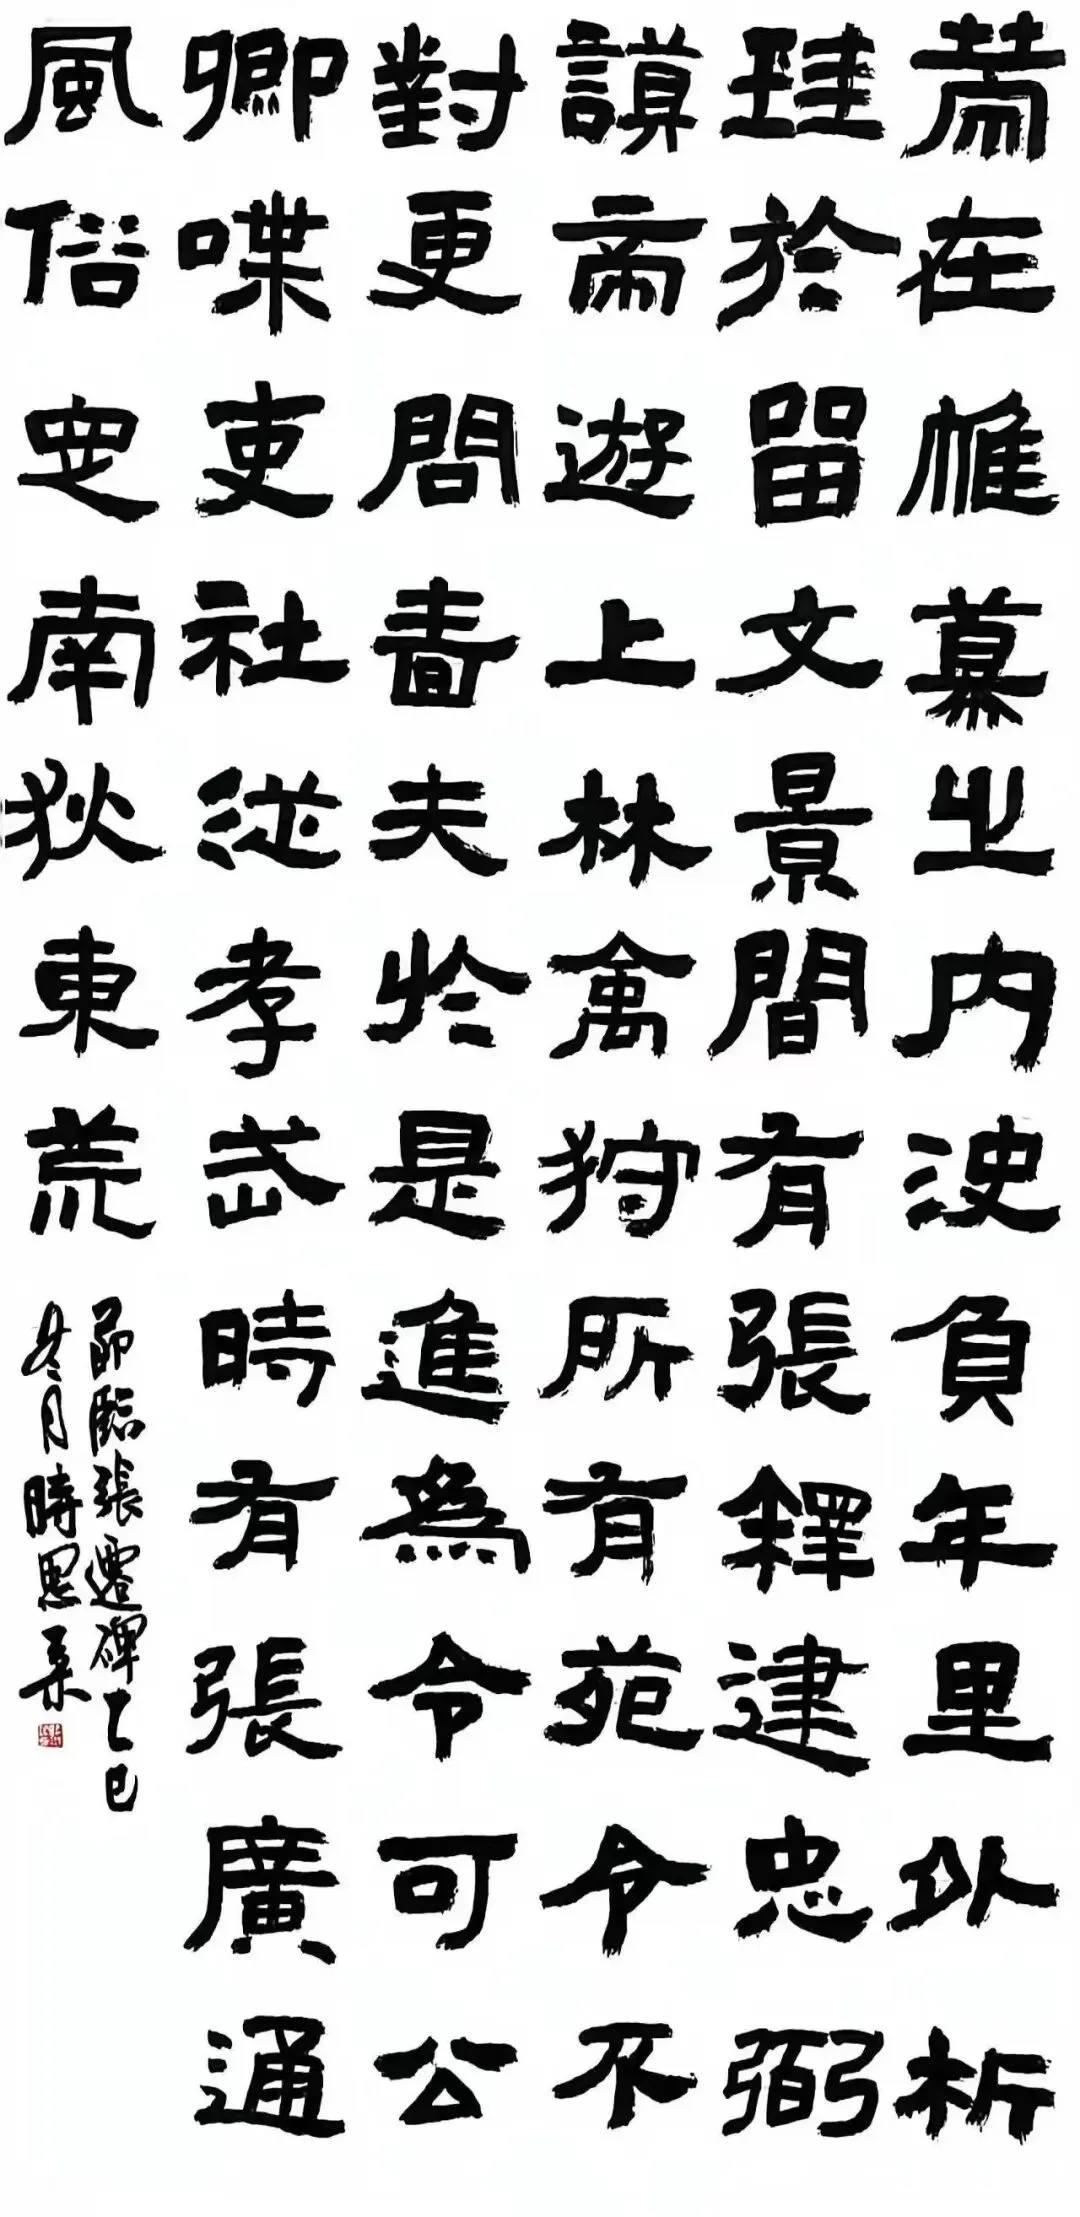 策在帷幕之内決負年里外析
珪於留文景間有張釋建忠弼
謨帝遊上林禽狩所有苑令不
對更問嗇夫於是進為令可公
卿喋吏社從孝武時有張廣通
風俗定南狄東荒
節臨張遷碑乙巳
冬月時恩柔